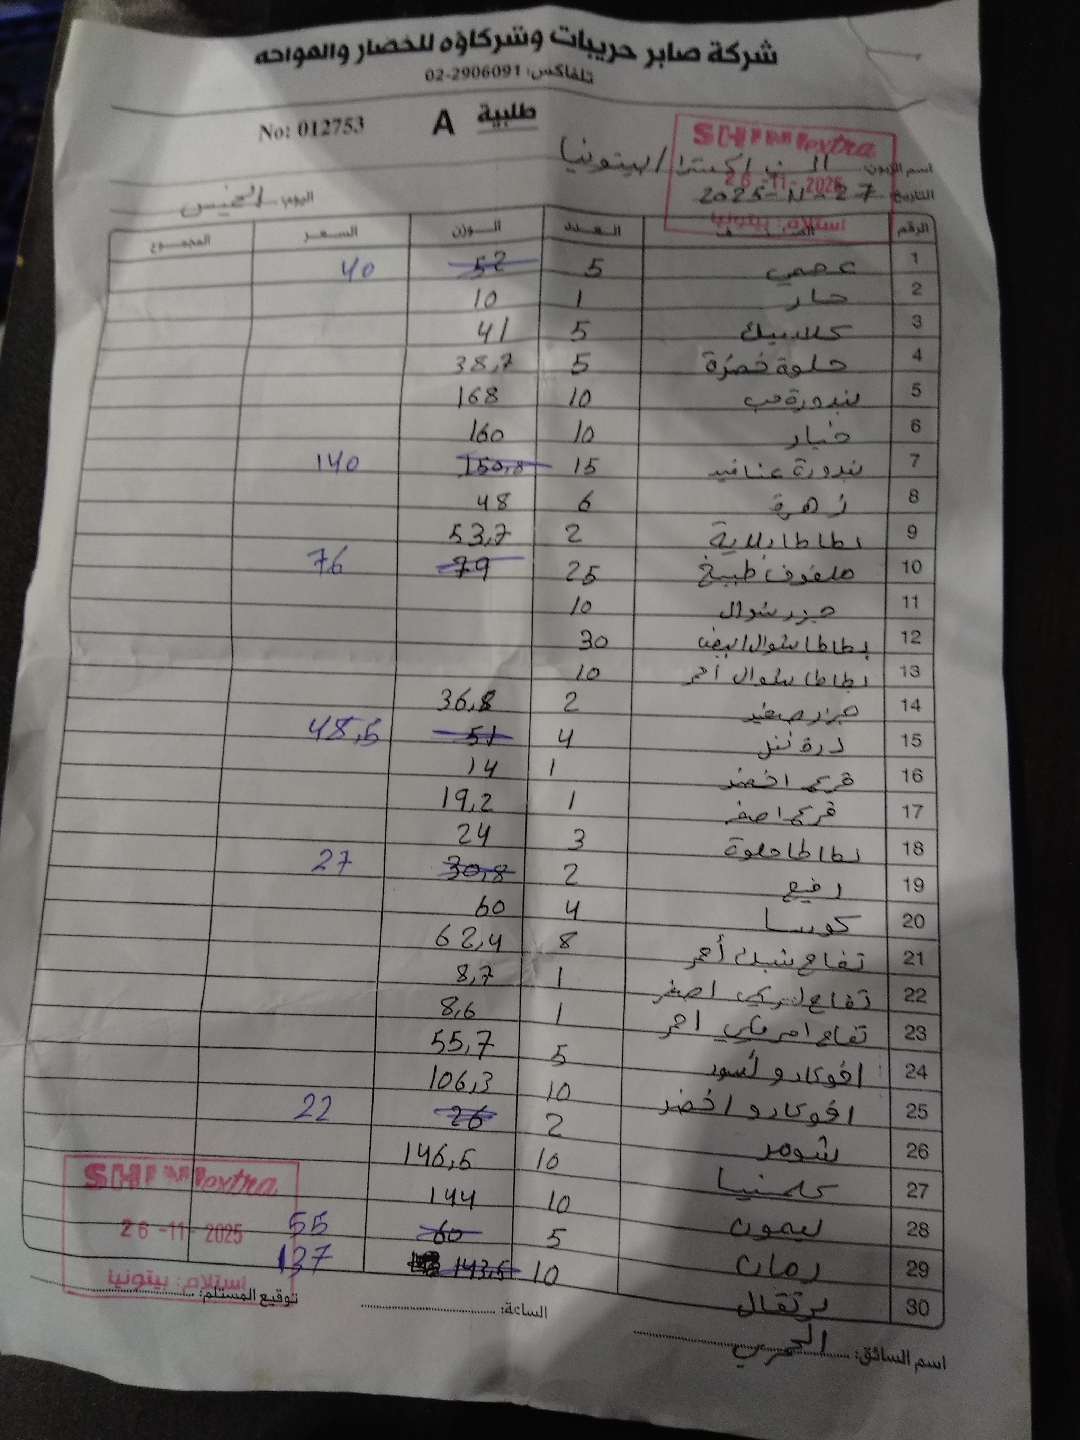 شركة صابر حريبات وشركاؤه للخضار والفواكه
تلفاكس: 02-2906091
No: 012753 A طلبية
SHINI extra
اسم الزبون: اكسترا / بيتونيا
26-11-2025
التاريخ: 27-11-2025 اليوم: الخميس
استلام: بيتونيا
الرقم الصنف العدد الوزن السعر المجموع
1 عجمي 5 52 40
2 حار 1 10
3 كلاسيك 5 41
4 حلوة خضرة 5 38,7
5 بندورة حب 10 168
6 خيار 10 160
7 بندورة عناقيد 15 150,8 140
8 زهرة 6 48
9 بطاطا بلاية 2 53,7
10 ملفوف طبيخ 25 79 76
11 جزر شوال 10
12 بطاطا شوال ابيض 30
13 بطاطا شوال أحمر 10
14 جزر صغير 2 36,8
15 ذرة 4 51 48,5
16 قرع اخضر 1 14
17 قرع اصفر 1 19,2
18 بطاطا حلوة 3 24
19 رفيع 2 30,8 27
20 كوسا 4 60
21 تفاح أحمر 8 62,4
22 تفاح اصفر 1 8,7
23 تفاح امريكي احمر 1 8,6
24 افوكادو أسود 5 55,7
25 افوكادو اخضر 10 106,3
26 شومر 2 26 22
27 كلمنتينا 10 146,5
28 ليمون 10 144
29 رمان 5 60 55
30 برتقال 10 143,5 137
SHINI extra
26-11-2025
استلام: بيتونيا
اسم السائق: الساعة: توقيع المستلم: